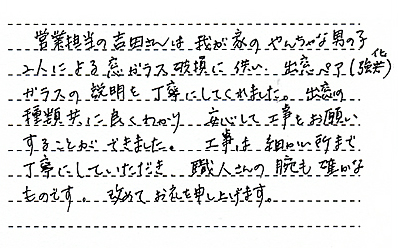 営業担当の吉田さんは 我が家の やんちゃな男の子
2人による窓ガラス破損に伴い、出窓ペア(強化)
ガラスの説明を丁寧にしてくれました。出窓の
種類共に良くわかり 安心して工事をお願い
することができました。 工事は細かい所まで
丁寧にしていただき 職人さんの腕も確かな
ものです。改めてお礼を申し上げます。